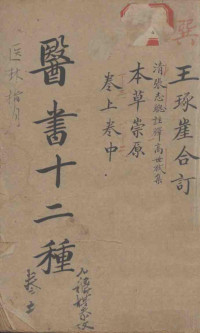 王琢崖合訂
清張志聰註釋高世栻集
本草崇原
卷上卷中
醫書十二種
医林指月